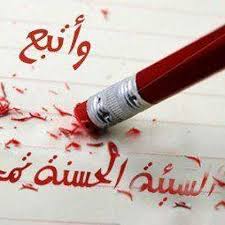 وأتبع
السيئة الحسنة تمـ